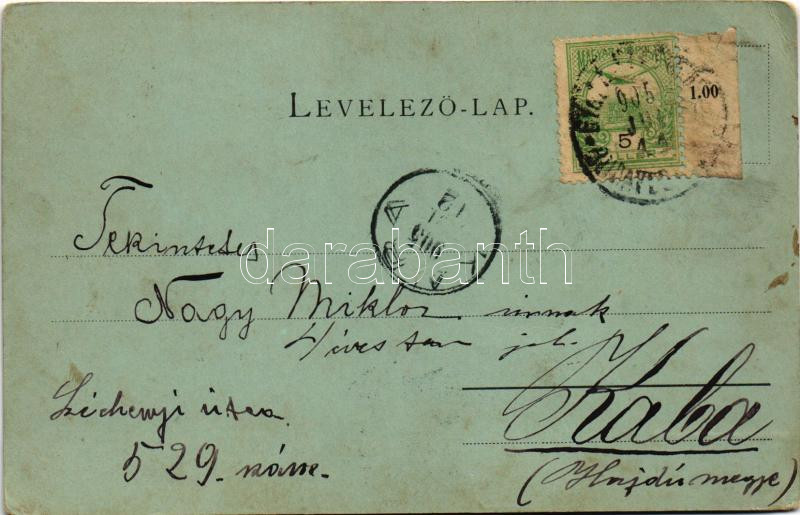 LEVELEZŐ-LAP.
1.00
905
5
KABA
905
12
darabanth
Tekintetes
Nagy Miklos urnak
Kaba
(Hajdú megye)
Széchenyi utca
529. szám.